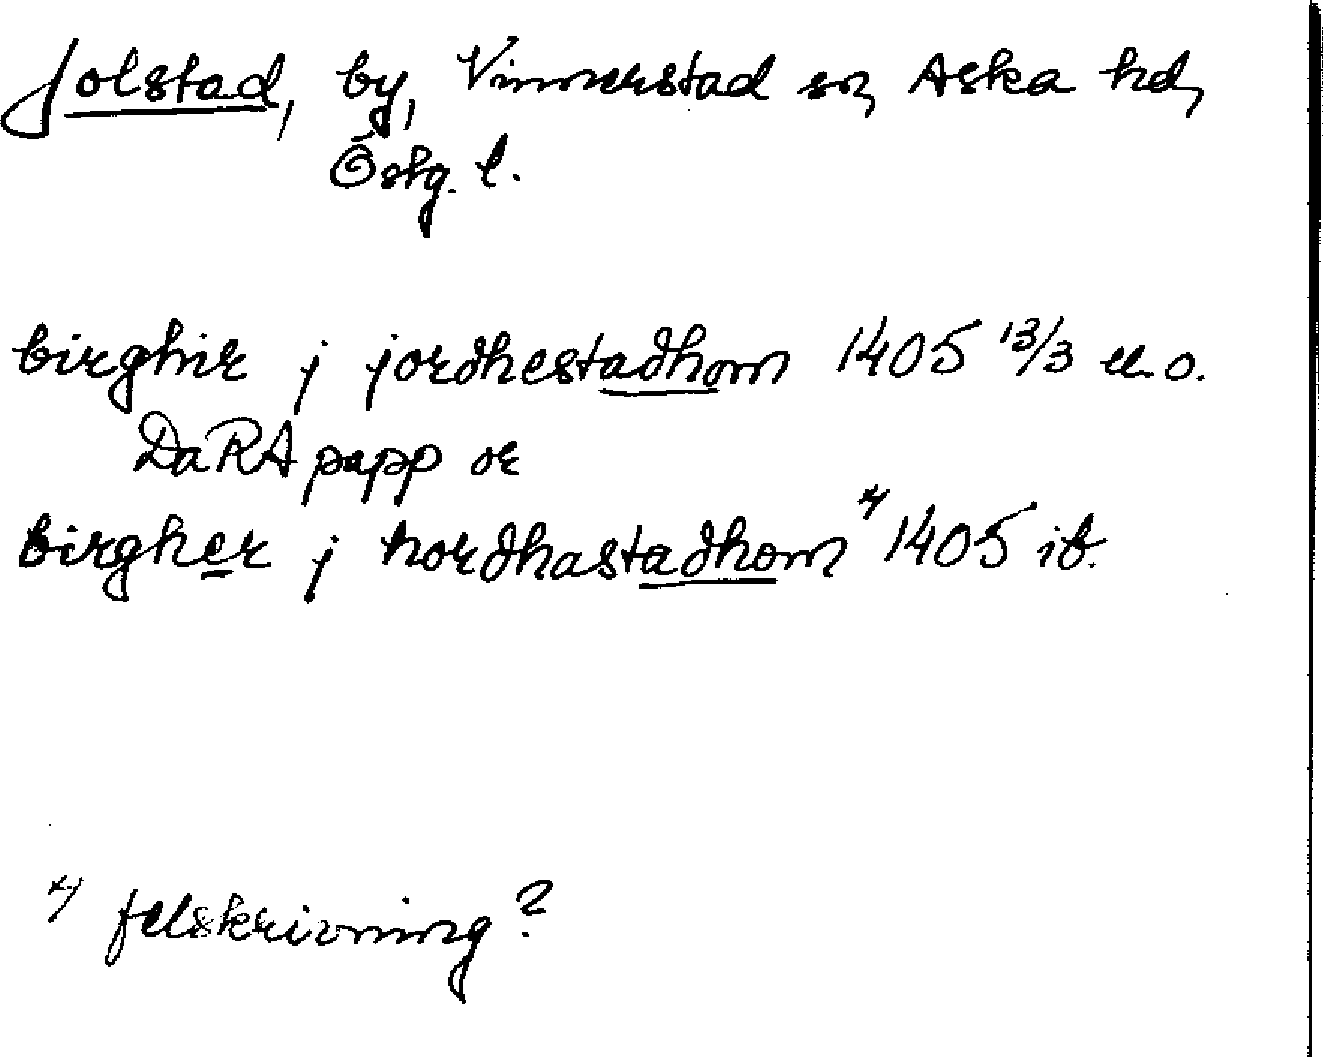 Jolstad, by, Vinnerstad sn, Aska hd,
Östg. l.
birghir j jordhestadhom 1405 13/3 u.o.
DaRA papp or
birgher j hordhastadhom x) 1405 ib.
x) felskrivning?